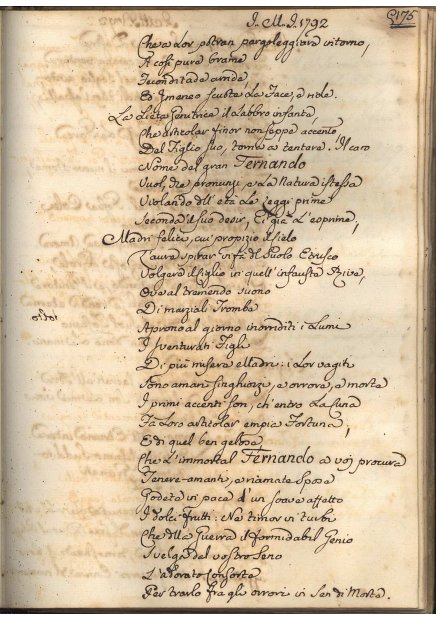 J. M. J. 1792
175
Che a Lor potran pargoleggiare intorno,
A cosi pure brame
Feconditade arride,
Ed Imeneo scuote La Face, e ride.
La Lieta Genitrice il Labbro infante,
Che articolar finor non seppe accento
Del Figlio suo, torna a tentare. Il caro
Nome del gran Fernando
Vuol, che pronunzi, e La Natura istessa
Violando dell' età Le Leggi prime
Seconda il suo desir, E già L'esprime,
Madri felici, cui propizio il Cielo
L'aure spirar vi fà del Suolo Etrusco
Volgere il ciglio in quell' infauste Rive,
Ove al tremendo suono
Di marziali Trombe
Aprono al giorno inorriditi i Lumi
I sventurati Figli
Di più misere Madri: i Lor vagiti
Sono amari singhiozzi, e orrore, e morte
I primi accenti son, ch'entro La Cuna
Fa Loro articolar empia Fortuna,
E di quel ben gelose,
Che L'immortal Fernando a voi procura
Tenere amanti, e riamate spose
Godete in pace d'un soave affetto
I dolci Frutti: Ne timor vi turbi
Che della Guerra il formidabil Genio
Svelga dal vostro seno
L'adorato Consorte
Per trarlo fra gli orrori in sen di Morte.